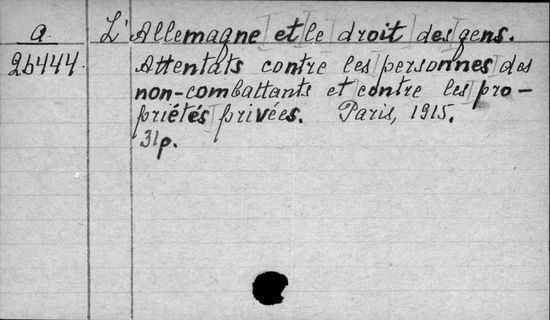 a L'Allemagne et le droit des gens.
26444. Attentats contre les personnes des
non-combattants et contre les pro-
priétés privées. Paris, 1915.
31p.